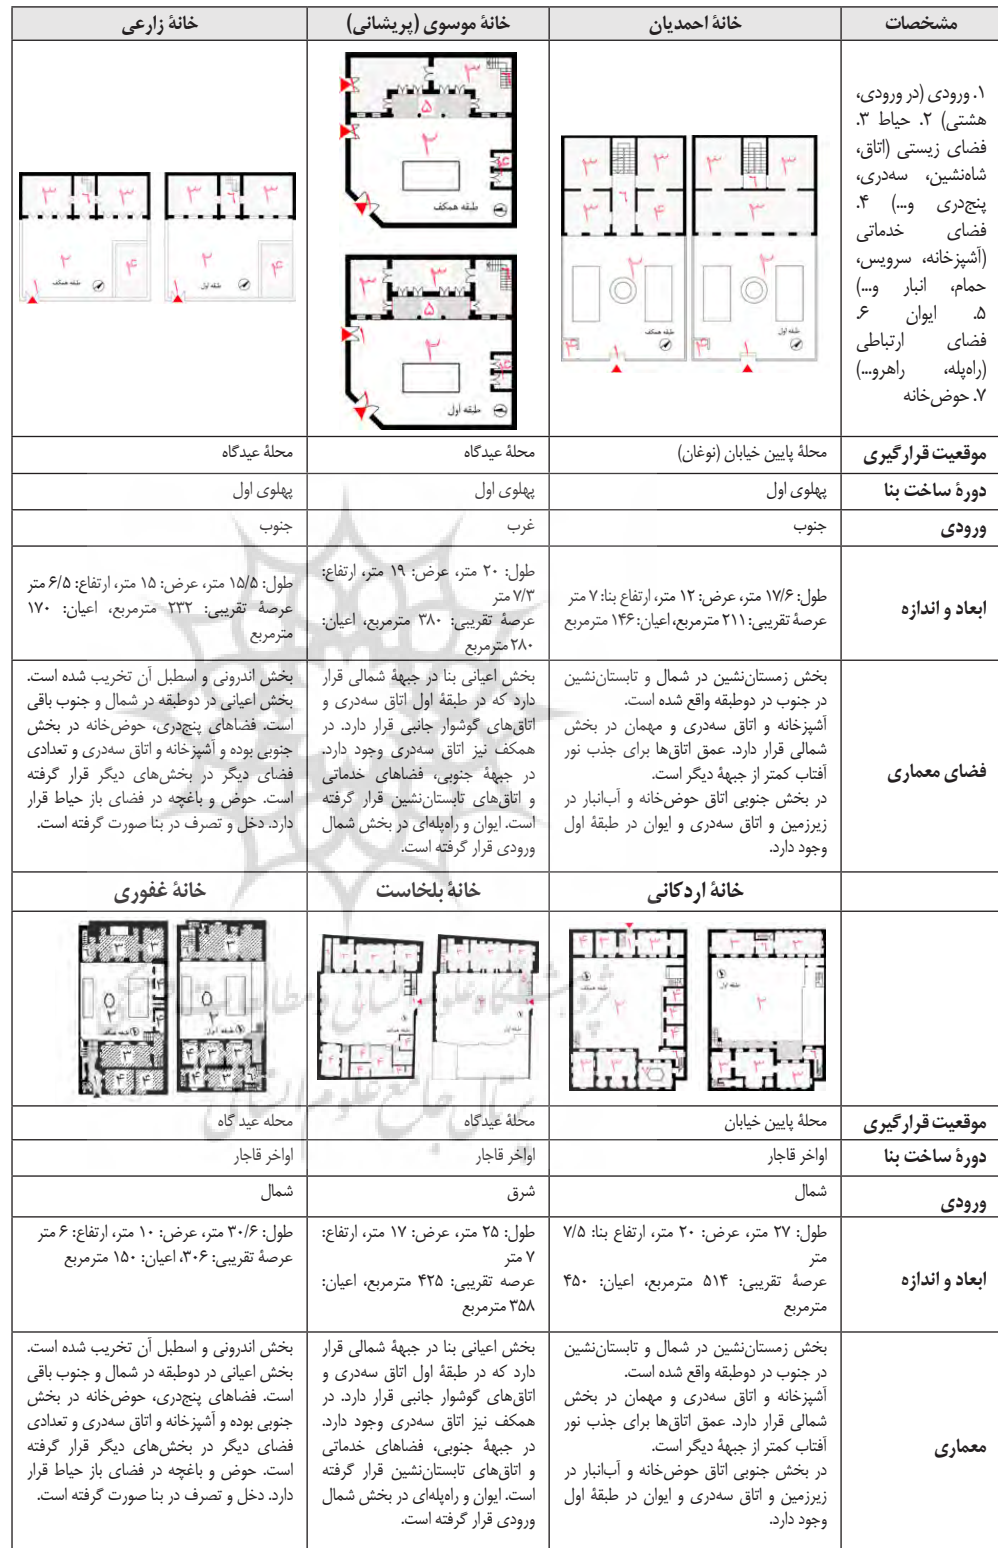 مشخصات
خانهٔ احمدیان
خانهٔ موسوی (پریشانی)
خانهٔ زارعی
۱. ورودی (در ورودی،
هشتی) ۲. حیاط ۳.
فضای زیستی (اتاق،
شاه‌نشین، سه‌دری،
پنج‌دری و...) ۴.
فضای خدماتی
(آشپزخانه، سرویس،
حمام، انبار و...)
۵. ایوان ۶.
فضای ارتباطی
(راه‌پله، راهرو...)
۷. حوض‌خانه
طبقه همکف
طبقه اول
طبقه همکف
طبقه اول
طبقه همکف
طبقه اول
موقعیت قرارگیری
محلهٔ پایین خیابان (نوغان)
محلهٔ عیدگاه
محلهٔ عیدگاه
دورهٔ ساخت بنا
پهلوی اول
پهلوی اول
پهلوی اول
ورودی
جنوب
غرب
جنوب
ابعاد و اندازه
طول: ۱۷/۶ متر، عرض: ۱۲ متر، ارتفاع بنا: ۷ متر
عرصهٔ تقریبی: ۲۱۱ مترمربع، اعیان: ۱۴۶ مترمربع
طول: ۲۰ متر، عرض: ۱۹ متر، ارتفاع:
۷/۳ متر
عرصهٔ تقریبی: ۳۸۰ مترمربع، اعیان:
۲۸۰ مترمربع
طول: ۱۵/۵ متر، عرض: ۱۵ متر، ارتفاع: ۶/۵ متر
عرصهٔ تقریبی: ۲۳۲ مترمربع، اعیان: ۱۷۰
مترمربع
فضای معماری
بخش زمستان‌نشین در شمال و تابستان‌نشین
در جنوب در دوطبقه واقع شده است.
آشپزخانه و اتاق سه‌دری و مهمان در بخش
شمالی قرار دارد. عمق اتاق‌ها برای جذب نور
آفتاب کمتر از جبههٔ دیگر است.
در بخش جنوبی اتاق حوض‌خانه و آب‌انبار در
زیرزمین و اتاق سه‌دری و ایوان در طبقهٔ اول
وجود دارد.
بخش اعیانی بنا در جبههٔ شمالی قرار
دارد که در طبقهٔ اول اتاق سه‌دری و
اتاق‌های گوشوار جانبی قرار دارد. در
همکف نیز اتاق سه‌دری وجود دارد.
در جبههٔ جنوبی، فضاهای خدماتی
و اتاق‌های تابستان‌نشین قرار گرفته
است. ایوان و راه‌پله‌ای در بخش شمال
ورودی قرار گرفته است.
بخش اندرونی و اسطبل آن تخریب شده است.
بخش اعیانی در دوطبقه در شمال و جنوب باقی
است. فضاهای پنج‌دری، حوض‌خانه در بخش
جنوبی بوده و آشپزخانه و اتاق سه‌دری و تعدادی
فضای دیگر در بخش‌های دیگر قرار گرفته
است. حوض و باغچه در فضای باز حیاط قرار
دارد. دخل و تصرف در بنا صورت گرفته است.
خانهٔ اردکانی
خانهٔ بلخاست
خانهٔ غفوری
پژوهشگاه علوم انسانی و مطالعات فرهنگی
پرتال جامع علوم انسانی
موقعیت قرارگیری
محلهٔ پایین خیابان
محلهٔ عیدگاه
محله عید گاه
دورهٔ ساخت بنا
اواخر قاجار
اواخر قاجار
اواخر قاجار
ورودی
شمال
شرق
شمال
ابعاد و اندازه
طول: ۲۷ متر، عرض: ۲۰ متر، ارتفاع بنا: ۷/۵
متر
عرصهٔ تقریبی: ۵۱۴ مترمربع، اعیان: ۴۵۰
مترمربع
طول: ۲۵ متر، عرض: ۱۷ متر، ارتفاع:
۷ متر
عرصه تقریبی: ۴۲۵ مترمربع، اعیان:
۳۵۸ مترمربع
طول: ۳۰/۶ متر، عرض: ۱۰ متر، ارتفاع: ۶ متر
عرصهٔ تقریبی: ۳۰۶، اعیان: ۱۵۰ مترمربع
معماری
بخش زمستان‌نشین در شمال و تابستان‌نشین
در جنوب در دوطبقه واقع شده است.
آشپزخانه و اتاق سه‌دری و مهمان در بخش
شمالی قرار دارد. عمق اتاق‌ها برای جذب نور
آفتاب کمتر از جبههٔ دیگر است.
در بخش جنوبی اتاق حوض‌خانه و آب‌انبار در
زیرزمین و اتاق سه‌دری و ایوان در طبقهٔ اول
وجود دارد.
بخش اعیانی بنا در جبههٔ شمالی قرار
دارد که در طبقهٔ اول اتاق سه‌دری و
اتاق‌های گوشوار جانبی قرار دارد. در
همکف نیز اتاق سه‌دری وجود دارد.
در جبههٔ جنوبی، فضاهای خدماتی
و اتاق‌های تابستان‌نشین قرار گرفته
است. ایوان و راه‌پله‌ای در بخش شمال
ورودی قرار گرفته است.
بخش اندرونی و اسطبل آن تخریب شده است.
بخش اعیانی در دوطبقه در شمال و جنوب باقی
است. فضاهای پنج‌دری، حوض‌خانه در بخش
جنوبی بوده و آشپزخانه و اتاق سه‌دری و تعدادی
فضای دیگر در بخش‌های دیگر قرار گرفته
است. حوض و باغچه در فضای باز حیاط قرار
دارد. دخل و تصرف در بنا صورت گرفته است.